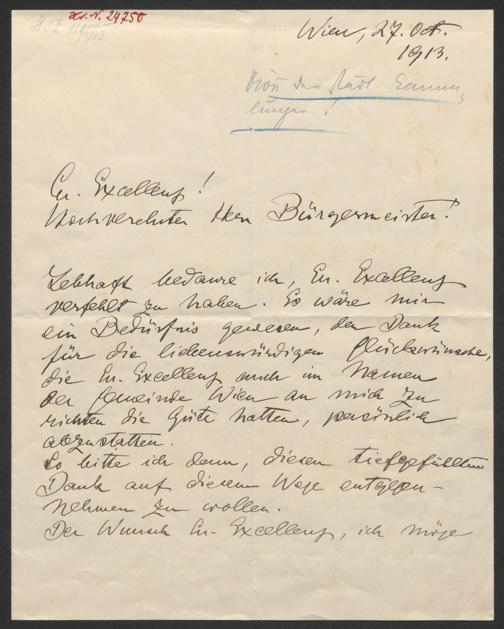 H.I.N. 24750
Wien, 27. Oct.
1913.
Für die städt. Samm-
lungen!
Eu. Excellenz!
Hochverehrter Herr Bürgermeister!
Lebhaft bedaure ich, Eu. Excellenz
verfehlt zu haben. Es wäre mir
ein Bedürfnis gewesen, den Dank
für die liebenswürdigen Glückwünsche,
die Eu. Excellenz auch im Namen
der Gemeinde Wien an mich zu
richten die Güte hatten, persönlich
abzustatten.
So bitte ich denn, diesen tiefgefühlten
Dank auf diesem Wege entgegen-
nehmen zu wollen.
Der Wunsch Eu. Excellenz, ich möge